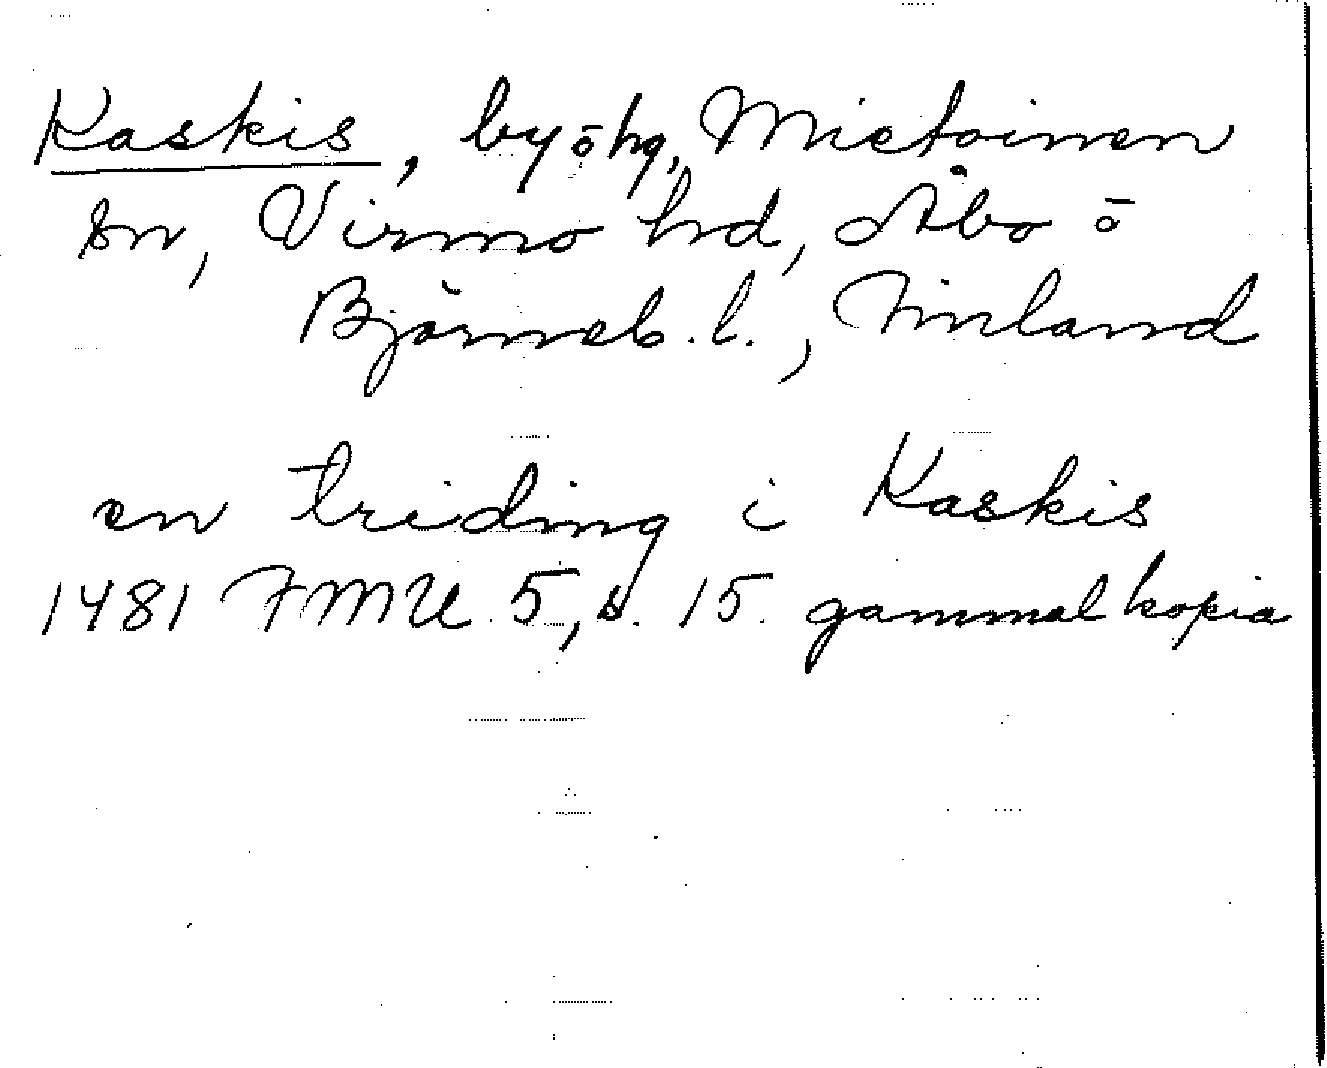 Kaskis, by ō hg, Mietoinen
sn, Virmo hd, Åbo ō
Björneb. l., Finland
en triding i Kaskis
1481 FMU 5, s. 15. gammal kopia